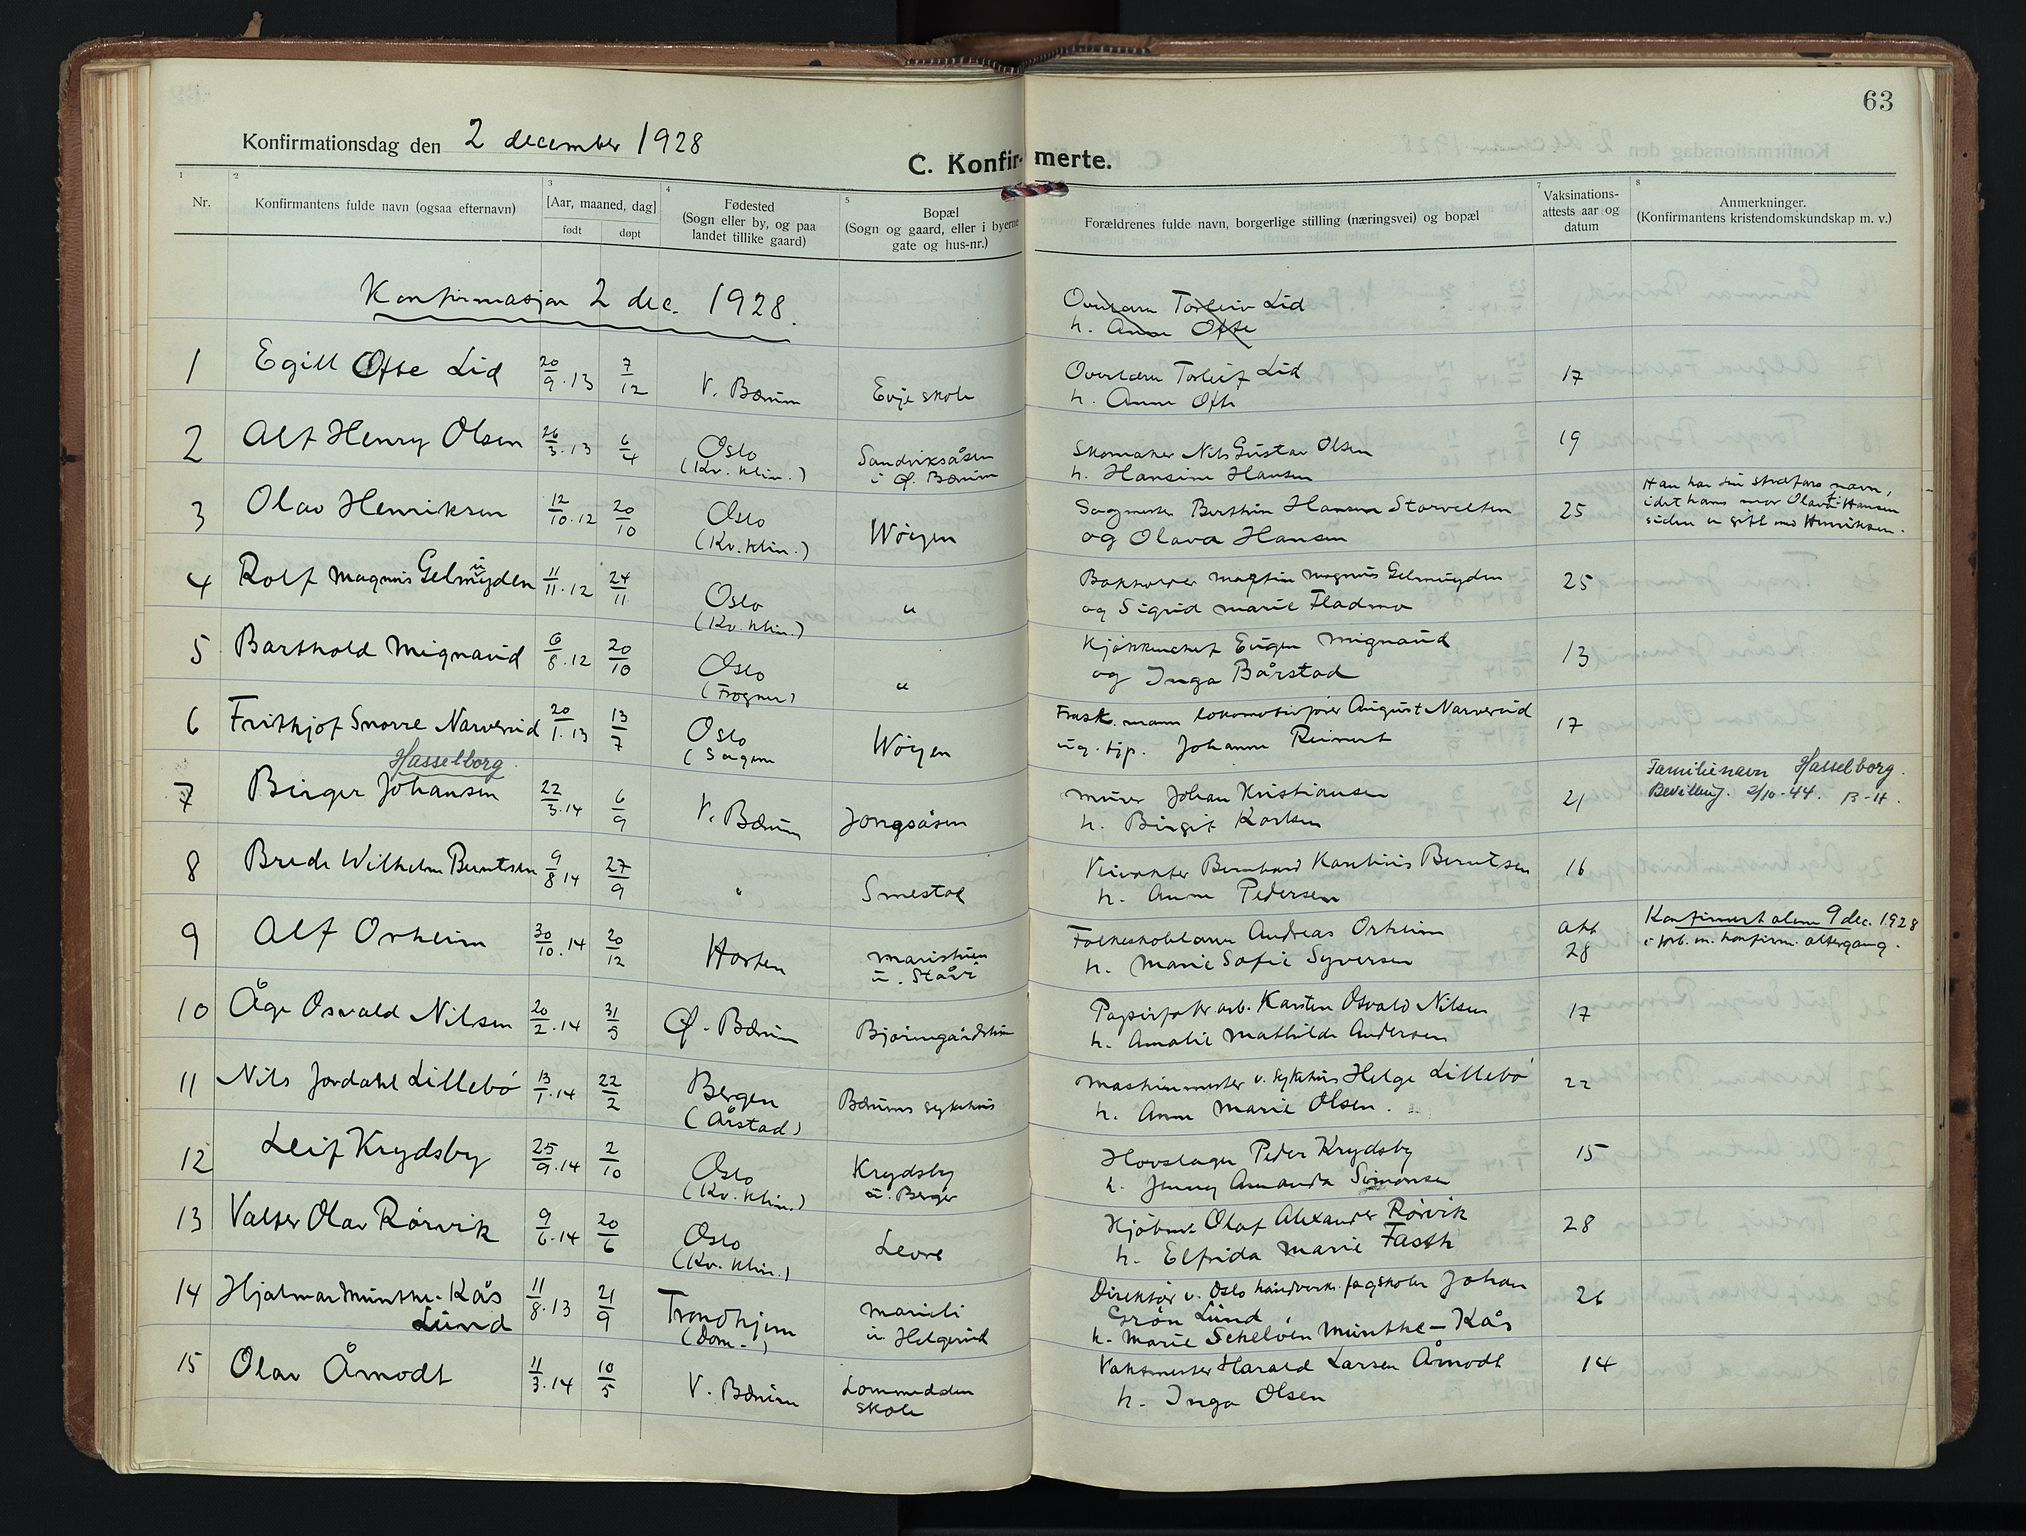 63
Konfirmationsdag den 2 december 1928
C. Konfirmerte.
1 2 3 4 5 7 8
Nr. Konfirmantens fulde navn (ogsaa efternavn) [Aar, maaned, dag] født døpt Fødested (Sogn eller by, og paa landet tillike gaard) Bopæl (Sogn og gaard, eller i byerne gate og hus-nr.) Forældrenes fulde navn, borgerlige stilling (næringsvei) og bopæl Vaksinationsattests aar og datum Anmerkninger. (Konfirmantens kristendomskundskap m. v.)
Konfirmasjon 2 dec. 1928.
Overlærer Torleiv Lid
h. Anna Ofte
1 Egill Ofte Lid 20/9.13 7/12 V. Bærum Evje skole Overlærer Torleif Lid 17
h. Anna Ofte
2 Alf Henry Olsen 26/3.13 6/4 Oslo Sandviksåsen Skomaker Nils Gustav Olsen 19
(Kv. klin.) i Ø. Bærum h. Hansine Hansen
3 Olav Henriksen 12/10.12 20/10 Oslo Wøyen Sagmester Hansen Storvelten 25 Han har sin stedfars navn,
(Kv. klin.) og Olava Hansen idet hans mor Olava Hansen
siden er gift med Henriksen.
4 Rolf Magnus Gelmuyden 11/11.12 24/11 Oslo " Martin Magnus Gelmuyden 25
(Kv. klin.) og Sigrid Marie Fladmo
5 Barthold Mignaud 6/8.12 20/10 Oslo " Kjøkkenchef Eugen Mignaud 13
(Frogner) og Inga Bårstad
6 Frithjof Snorre Narverud 20/1.13 13/7 Oslo Wøyen Frask. mann lokomotivfører August Narverud 17
(Sagene Johanne Reinert
Hasselborg
7 Birger Johansen 22/3.14 6/9 V. Bærum Jongsåsen Murer Johan Kristiansen 21 Familienavn Hasselborg.
h. Birgit Karlsen Bevilling. 2/10-44. B-H.
8 Brede Wilhelm Berntsen 9/8 14 27/9 " Smestad Veivokter Bernhard Berntsen 16
h. Anna Pedersen
9 Alf Orheim 30/10.14 20/12 Horten Maristuen Folkeskolelærer Andreas Orheim okt Konfirmert alene 9 dec. 1928
u. Stävi h. Marie Sofie Syversen 28 i forb. m. konfirm. altergang.
10 Åge Osvald Nilsen 20/2.14 31/5 Ø. Bærum Bjørnegårdstuen Papirfabr.arb. Karsten Osvald Nilsen 17
h. Amalie Mathilde Andersen
11 Nils Jordahl Lillebö 13/1.14 22/2 Bergen Bærums sykehus Maskinmester v. sykehus Helge Lillebö 22
(Årstad) h. Anna Marie Olsen.
12 Leif Krydsby 25/9.14 2/10 Oslo Krydsby Hovslager Peder Krydsby 15
(Kv. klin.) u. Berger h. Jenny Amanda Simonsen
13 Valter Olav Rørvik 9/6.14 20/6 Oslo Levre Kjøbm. Olaf Alexander Rørvik 28
(Kv. klin.) h. Elfrida Marie Fasth
14 Hjalmar Munthe-Kås 11/8.13 21/9 Trondhjem Marieli Direktør v. Oslo håndverks. fagskoler Johan 26
Lund (Dom.) u. Helgerud Grön Lund
h. Marie Schelvén Munthe-Kås
15 Olav Åmodt 11/3.14 10/5 V. Bærum Lommedalen Vaktmester Harald Larsen Åmodt 14
skole h. Inga Olsen